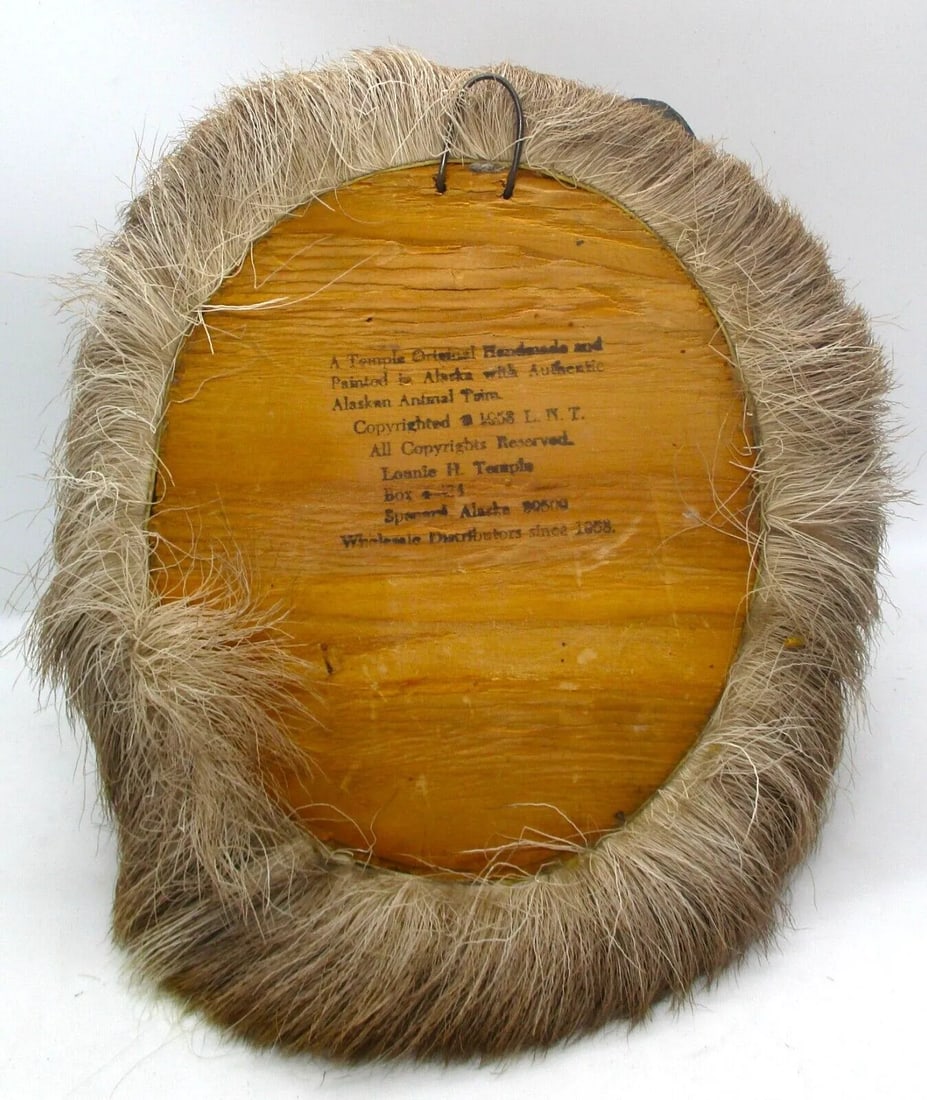 A Temple Original Handmade and
Painted in Alaska with Authentic
Alaskan Animal Trim.
Copyrighted 1958 L. H. T.
All Copyrights Reserved.
Lonnie H. Temple
Box
Spenard Alaska
Wholesale Distributors since 1958.